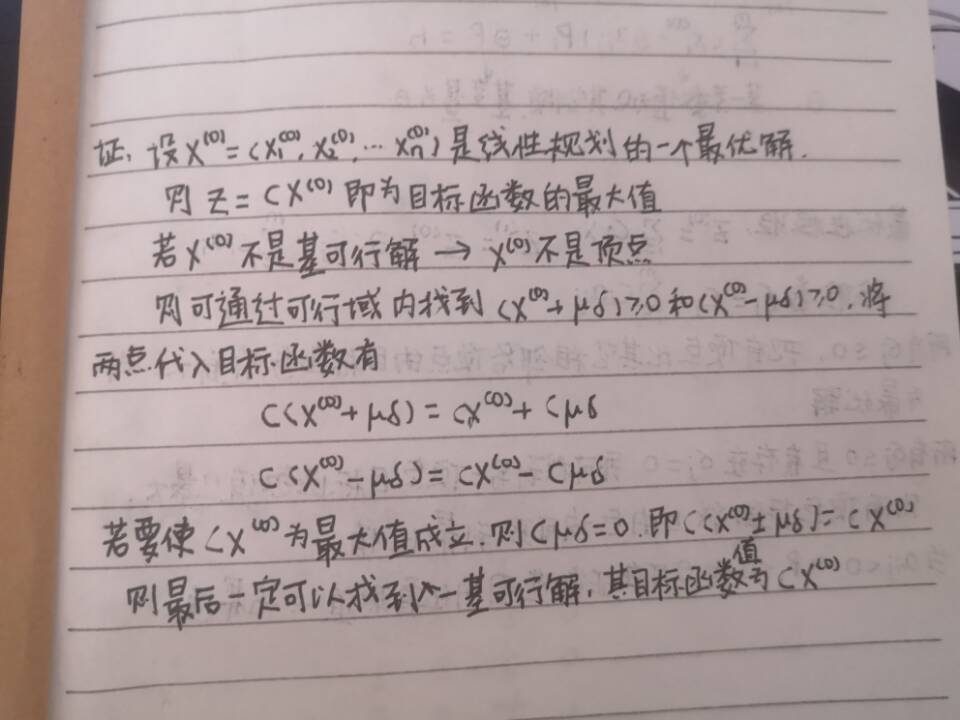 证: 设X⁽⁰⁾=(X₁⁽⁰⁾, X₂⁽⁰⁾, … Xₙ⁽⁰⁾) 是线性规划的一个最优解.
则 Z = CX⁽⁰⁾ 即为目标函数的最大值
若X⁽⁰⁾不是基可行解 → X⁽⁰⁾不是顶点
则可通过可行域内找到 (X⁽⁰⁾+μδ)≥0 和 (X⁽⁰⁾-μδ)≥0. 将
两点代入目标函数有
C(X⁽⁰⁾+μδ) = CX⁽⁰⁾ + Cμδ
C(X⁽⁰⁾-μδ) = CX⁽⁰⁾ - Cμδ
若要使CX⁽⁰⁾为最大值成立. 则Cμδ=0. 即C(X⁽⁰⁾±μδ)=CX⁽⁰⁾
则最后一定可以找到一基可行解, 其目标函数值为CX⁽⁰⁾